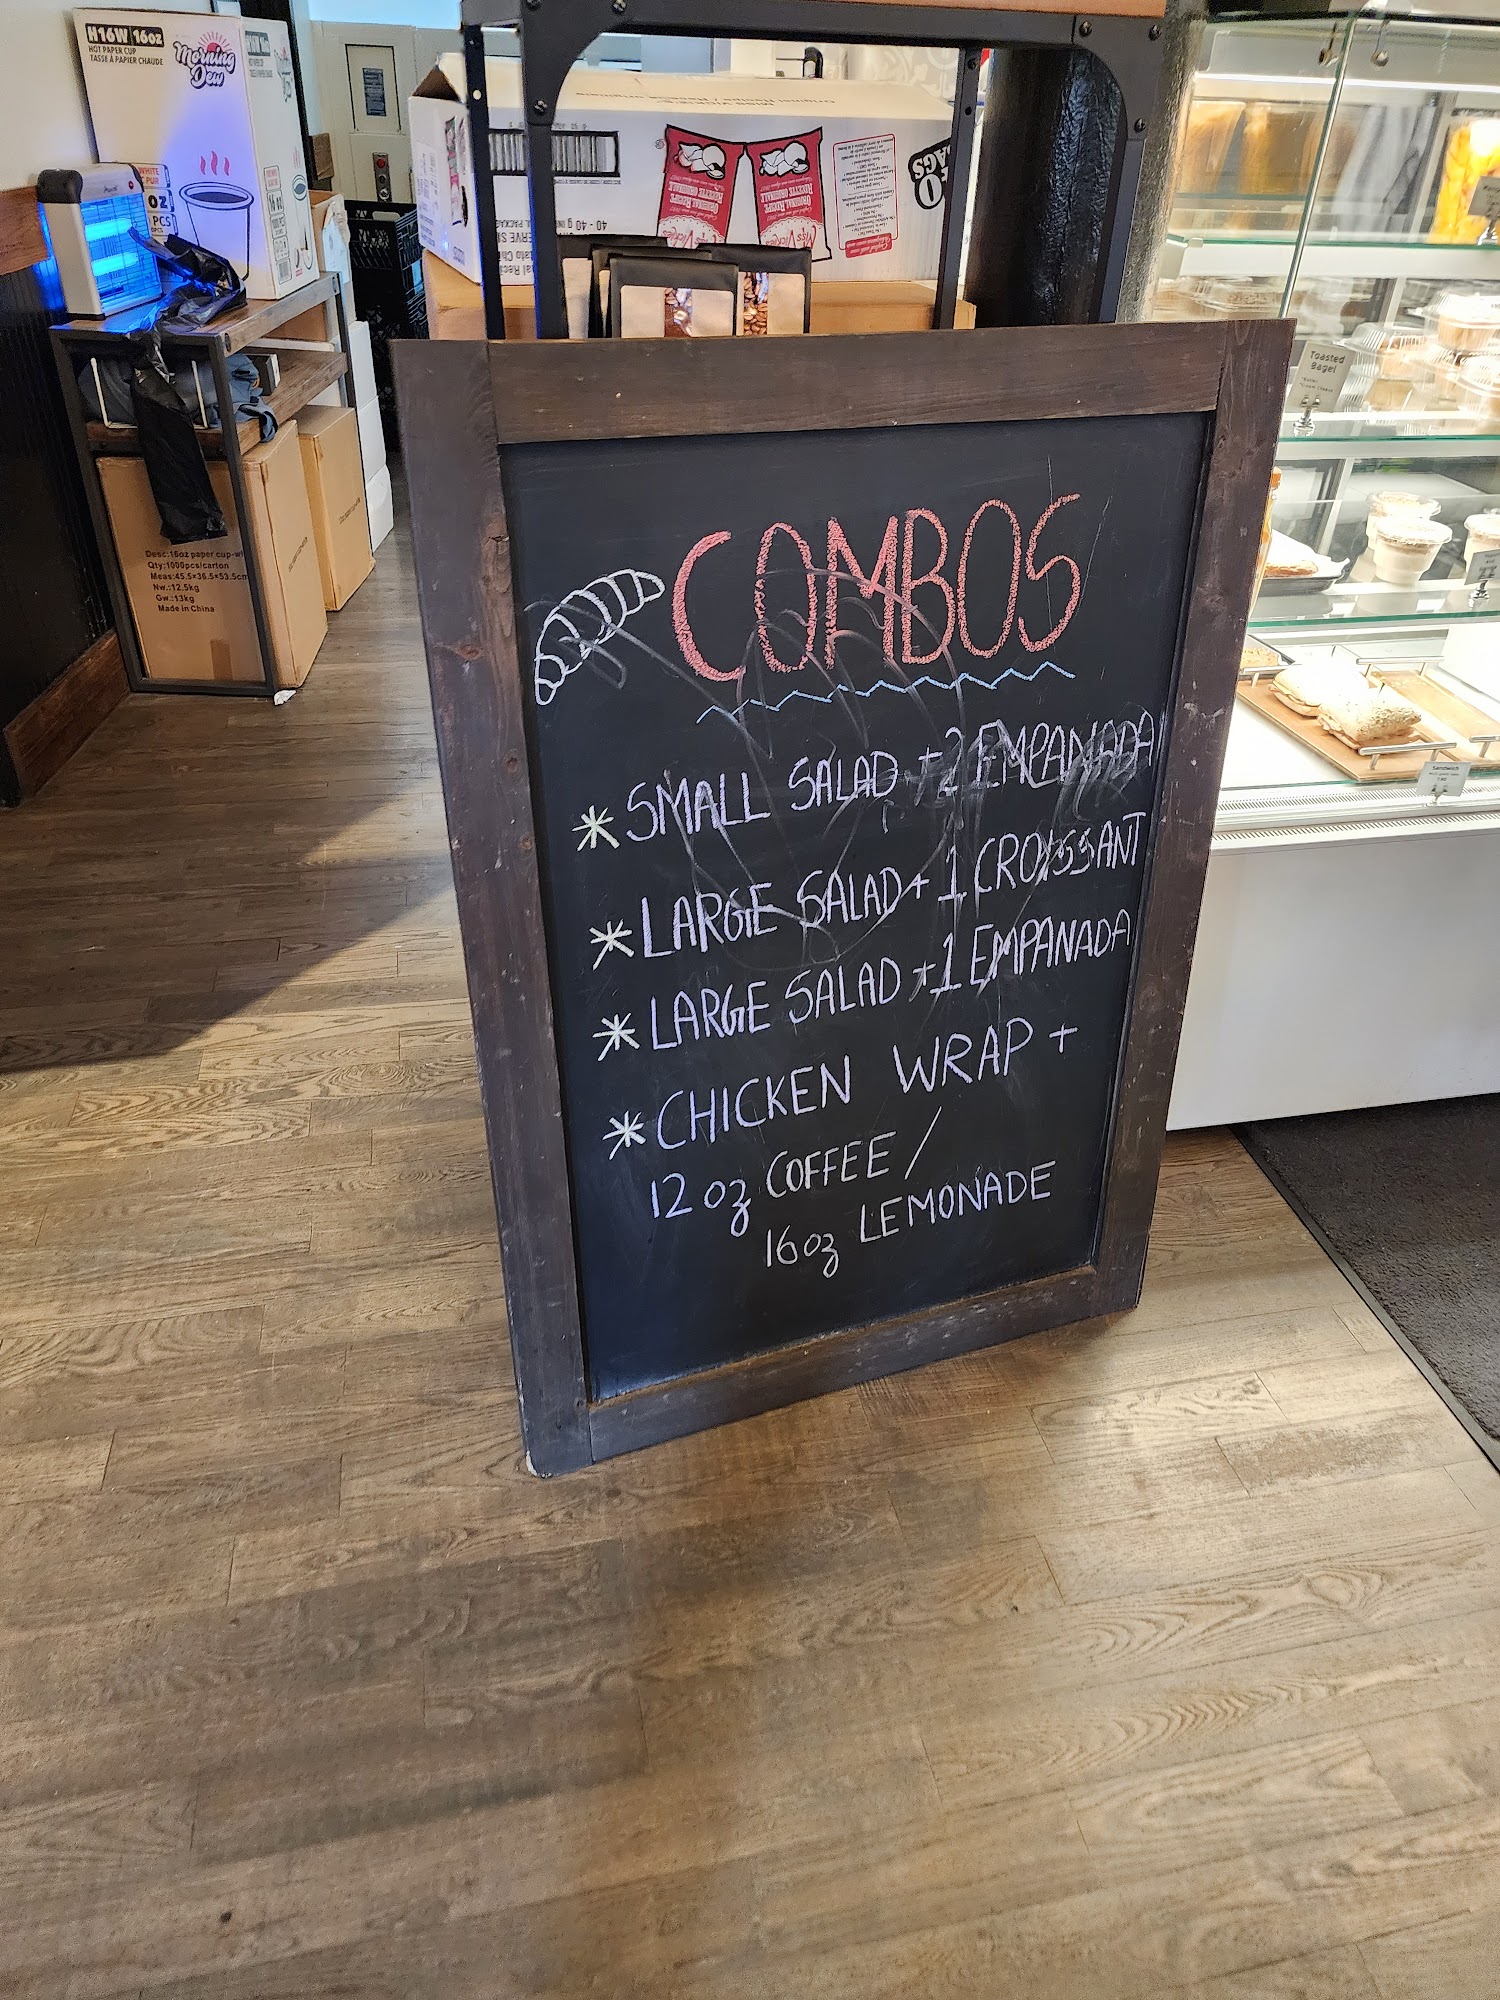 H16W 16oz
HOT PAPER CUP
TASSE À PAPIER CHAUDE
Morning
Dew
ORIGINAL RECIPE
RECETTE ORIGINALE
Miss Vickie's
BAGS
Desc:16oz paper cup-wh
Qty:1000pcs/carton
Meas:45.5×36.5×53.5cm
Nw.:12.5kg
Gw.:13kg
Made in China
Toasted
Bagel
Sandwich
COMBOS
* SMALL SALAD + 2 EMPANADA
* LARGE SALAD + 1 CROISSANT
* LARGE SALAD + 1 EMPANADA
* CHICKEN WRAP +
12 oz COFFEE /
16 oz LEMONADE